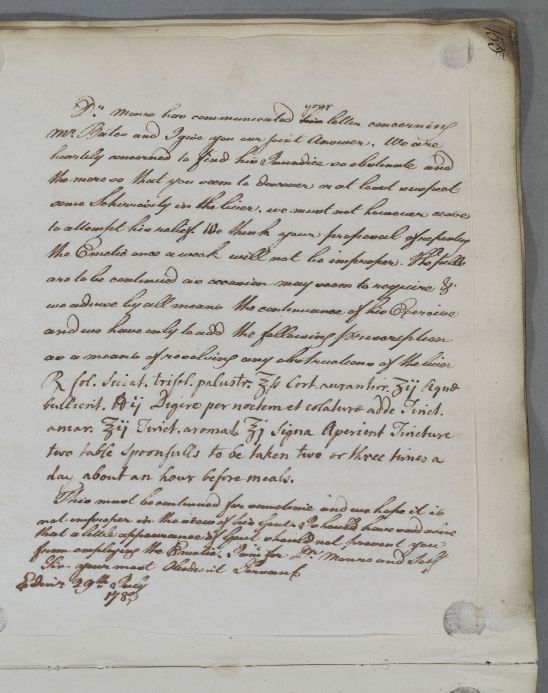 155
your
Dr. Monro has communicated his letter concerning
Mr. and I give you our joint Answer. We are
heartily concerned to find his Jaundice so obstinate and
the more so that you seem to discover or at least suspect
some Schirrosity in the liver. we must not however cease
to attempt his relief We think your proposal of repeating
the Emetic once a week will not be improper. The pills
are to be continued as occasion may seem to require &
we advise by all means the continuance of his Exercise
and we have only to add the following prescription
as a means of resolving any obstructions of the liver
℞ fol. Siccat. trifol. palustr. ℥ß Cort. aurantior. ʒij Aquæ
bullient. ℔ij Digere per noctem et colaturæ adde Tinct.
amar. ℥ij Tinct. aromat. ℥j Signa Aperient Tincture
two table Spoonfulls to be taken two or three times a
day about an hour before meals.
This must be continued for some time and we hope it is
not improper in the view of his Gout. I should have said above
that a little appearance of Gout should not prevent you
from employing the Emetic. for Dr. Monro and Self
Sir your most Obedient Servant
Edinr. 29th July
178